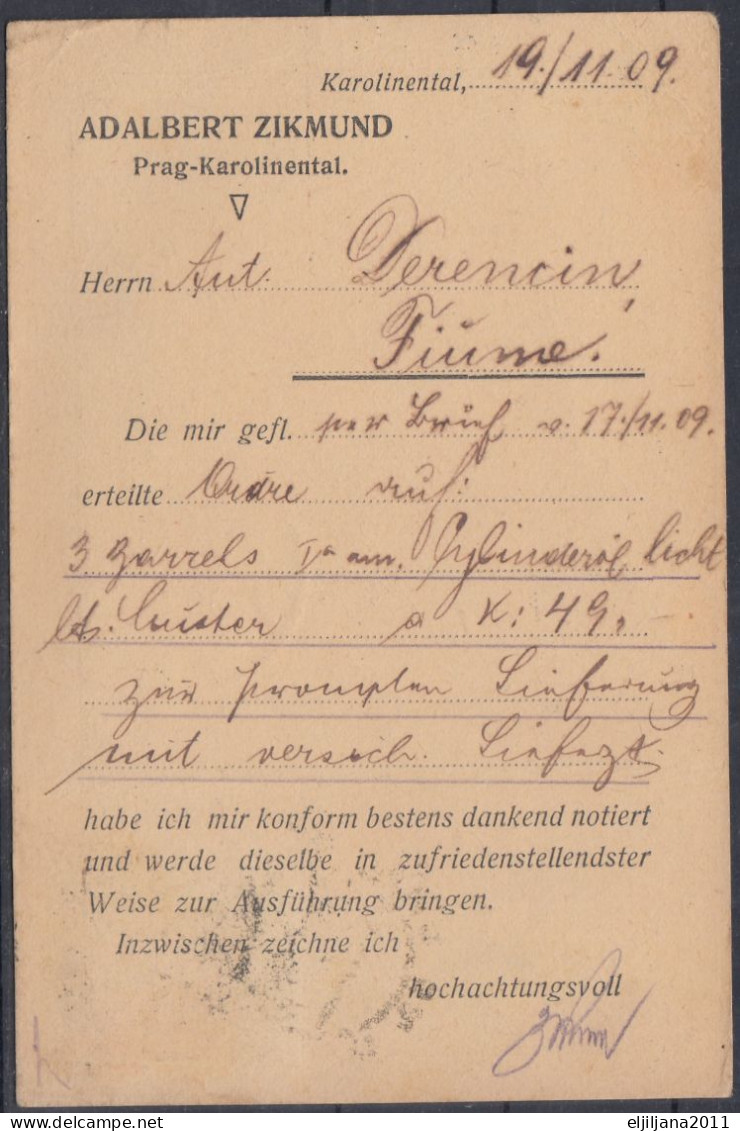 Karolinental, 19./11.09.
ADALBERT ZIKMUND
Prag-Karolinental.
Herrn Ant. Derencin,
Fiume.
Die mir gefl. per Brief v. 17./11.09.
erteilte Ordre auf:
3 Barrels Ia am. Cylinderöl licht
lt. Muster a K: 49.-
zur prompten Lieferung
mit versich. Lieferzt.
habe ich mir konform bestens dankend notiert
und werde dieselbe in zufriedenstellendster
Weise zur Ausführung bringen.
Inzwischen zeichne ich
hochachtungsvoll
eljiljana2011